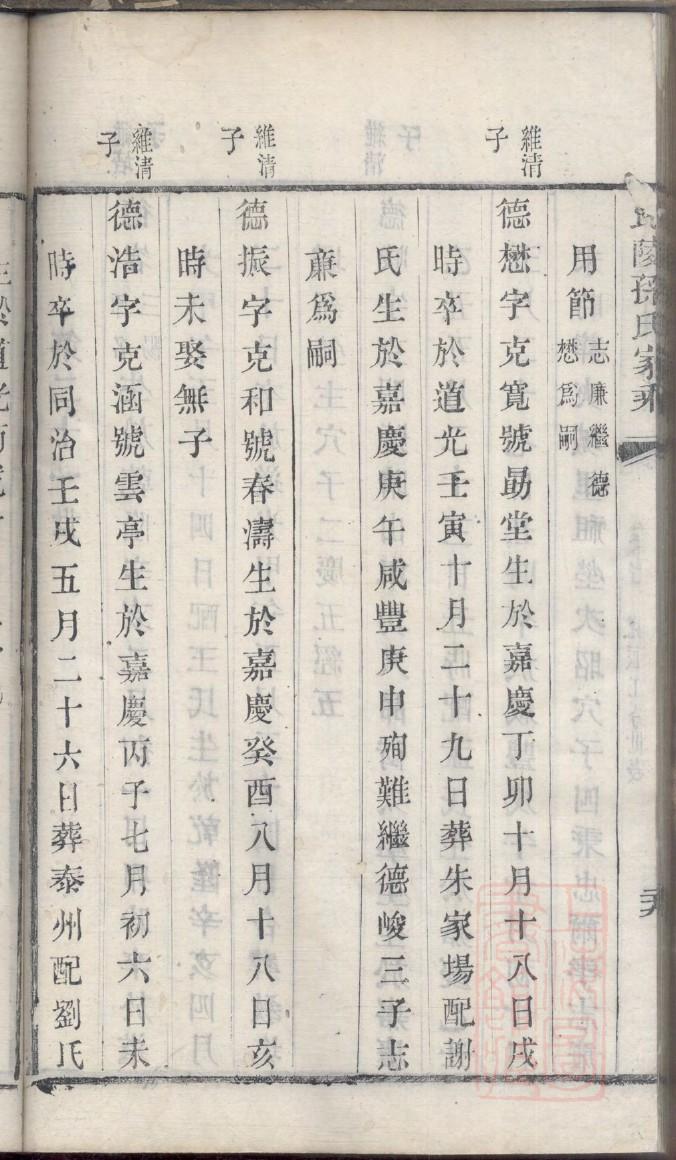 陵孫氏家乘
用節
志廉繼德
懋爲嗣
維清
子
德懋字克寬號勗堂生於嘉慶丁卯十月十八日戌
時卒於道光壬寅十月二十九日葬朱家場配謝
氏生於嘉慶庚午咸豐庚申殉難繼德峻三子志
亷爲嗣
維清
子
德振字克和號春濤生於嘉慶癸酉八月十八日亥
時未娶無子
維清
子
德浩字克涵號雲亭生於嘉慶丙子七月初六日未
時卒於同治壬戌五月二十六日葬泰州配劉氏